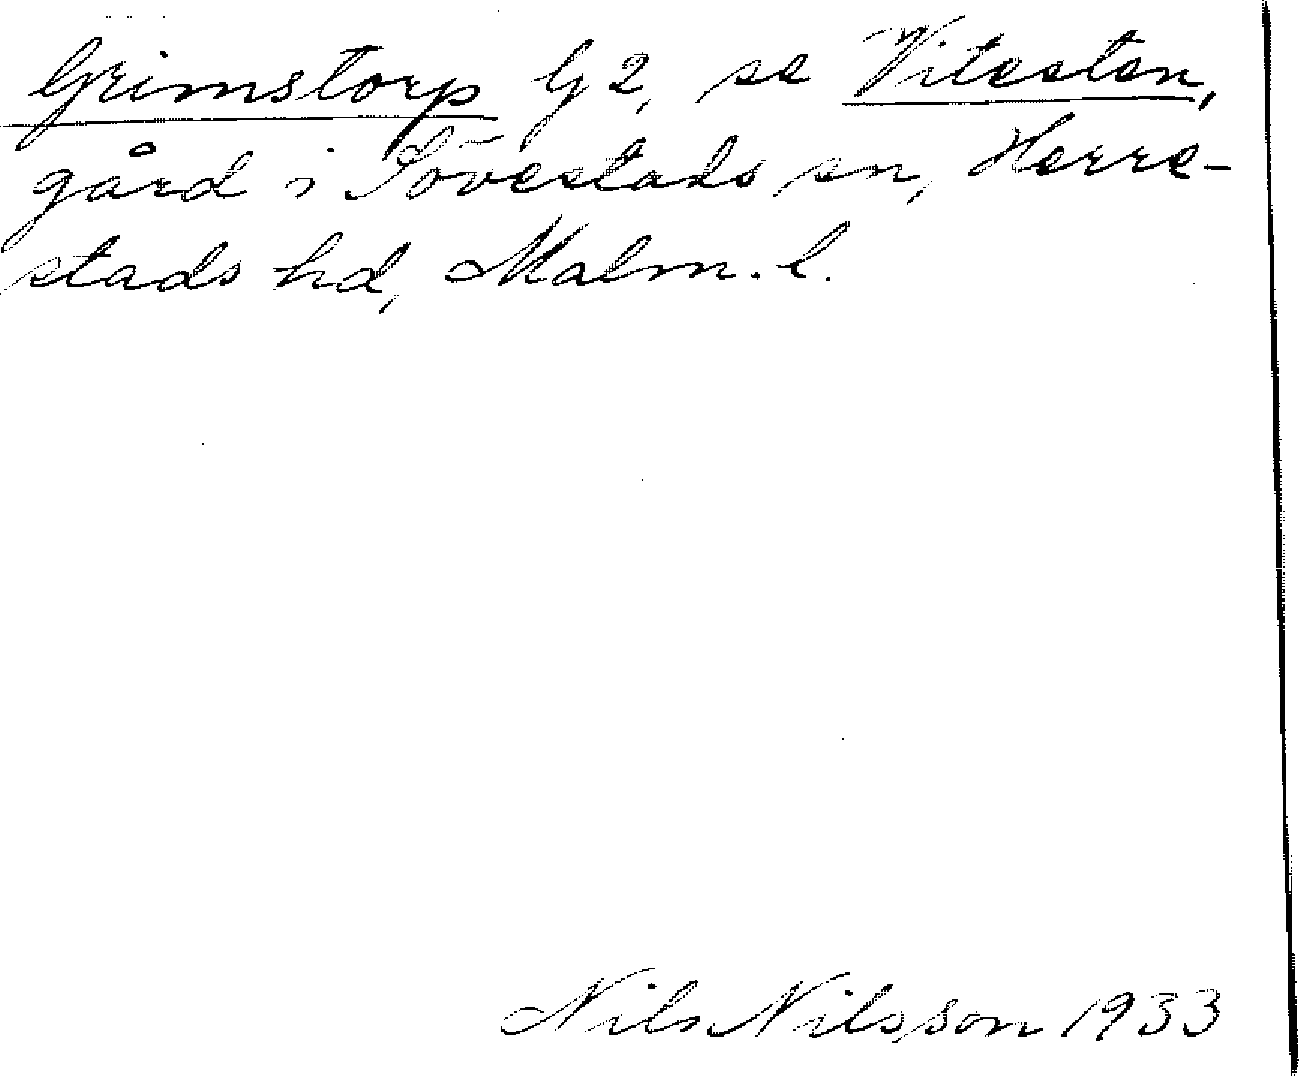 Grimstorp G2, se Vitesten,
gård i Sövestads sn, Herre-
stads hd, Malm. l.
Nils Nilsson 1933